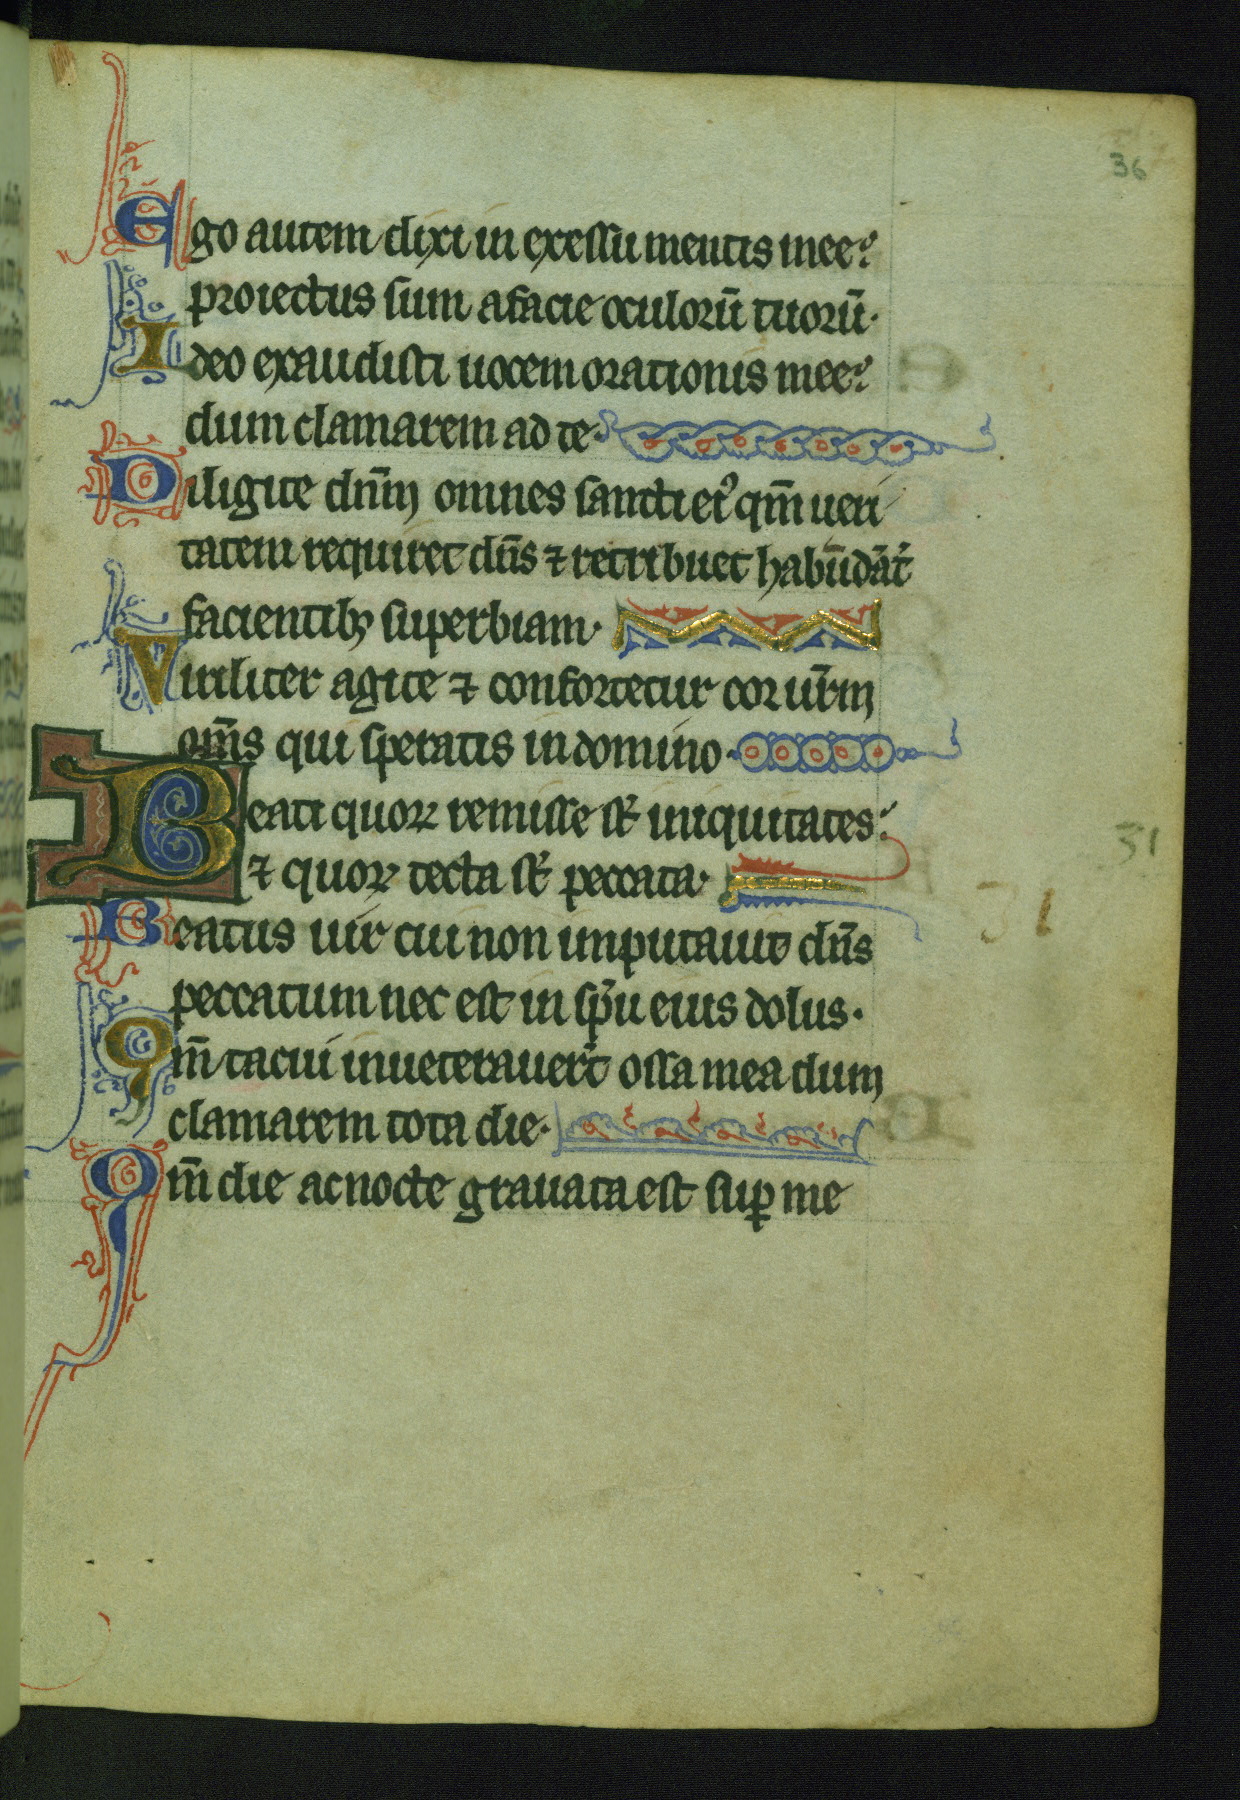 36
Ego autem dixi in exessu mentis mee:
proiectus sum a facie oculorū tuorū.
Ideo exaudisti uocem orationis mee:
dum clamarem ad te.
Diligite dn̄m omnes sancti ei᾽ qm̄ ueri
tatem requiret dn̄s ⁊ retribuet habūdāt᾽
facientibꝫ superbiam.
Viriliter agite ⁊ confortetur cor ur̄m
om̄s qui speratis in domino.
Beati quoꝝ remisse st᾽ iniquitates:
⁊ quoꝝ tecta st᾽ peccata.
31
31
Beatus uir cui non imputauit dn̄s
peccatum nec est in sp̄u eius dolus.
Qm̄ tacui inueterauer̄t ossa mea dum
clamarem tota die.
Qm̄ die ac nocte grauata est suꝑ me